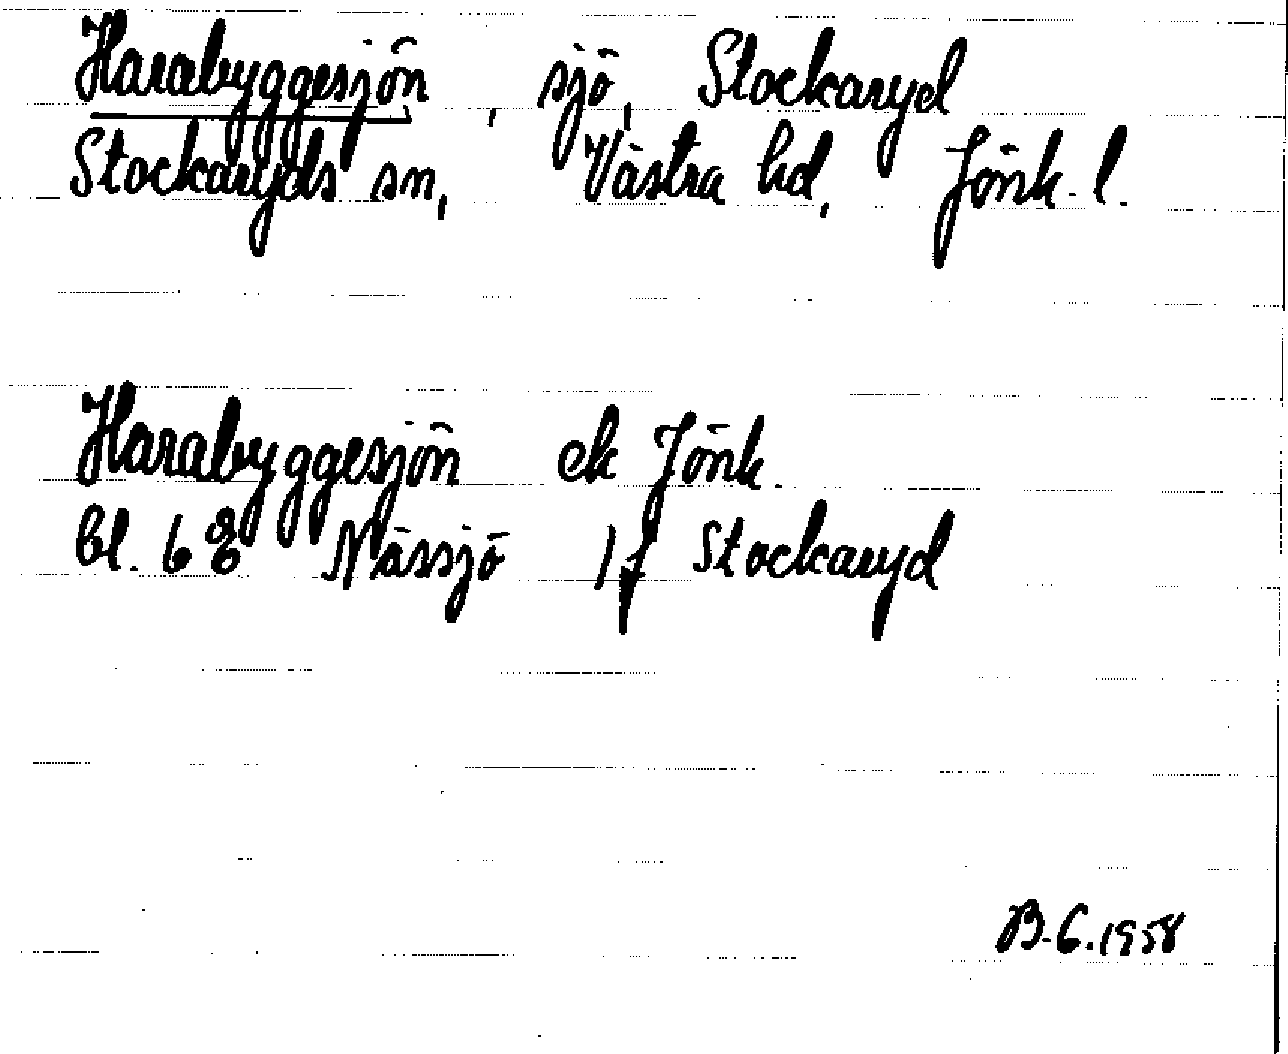 Harabyggesjön, sjö, Stockaryd
Stockaryds sn, Västra hd, Jönk. l.
Harabyggesjön ek Jönk.
bl. 68 Nässjö Stockaryd
B-C. 1958